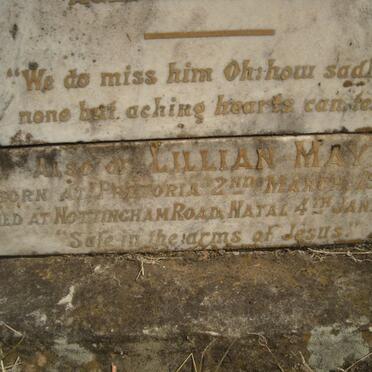 "We do miss him Oh! how sadly
none but aching hearts can tell
Also of LILLIAN MAY
BORN AT PRETORIA 2ND MARCH
DIED AT NOTTINGHAM ROAD, NATAL 4TH JAN
"Safe in the arms of Jesus."